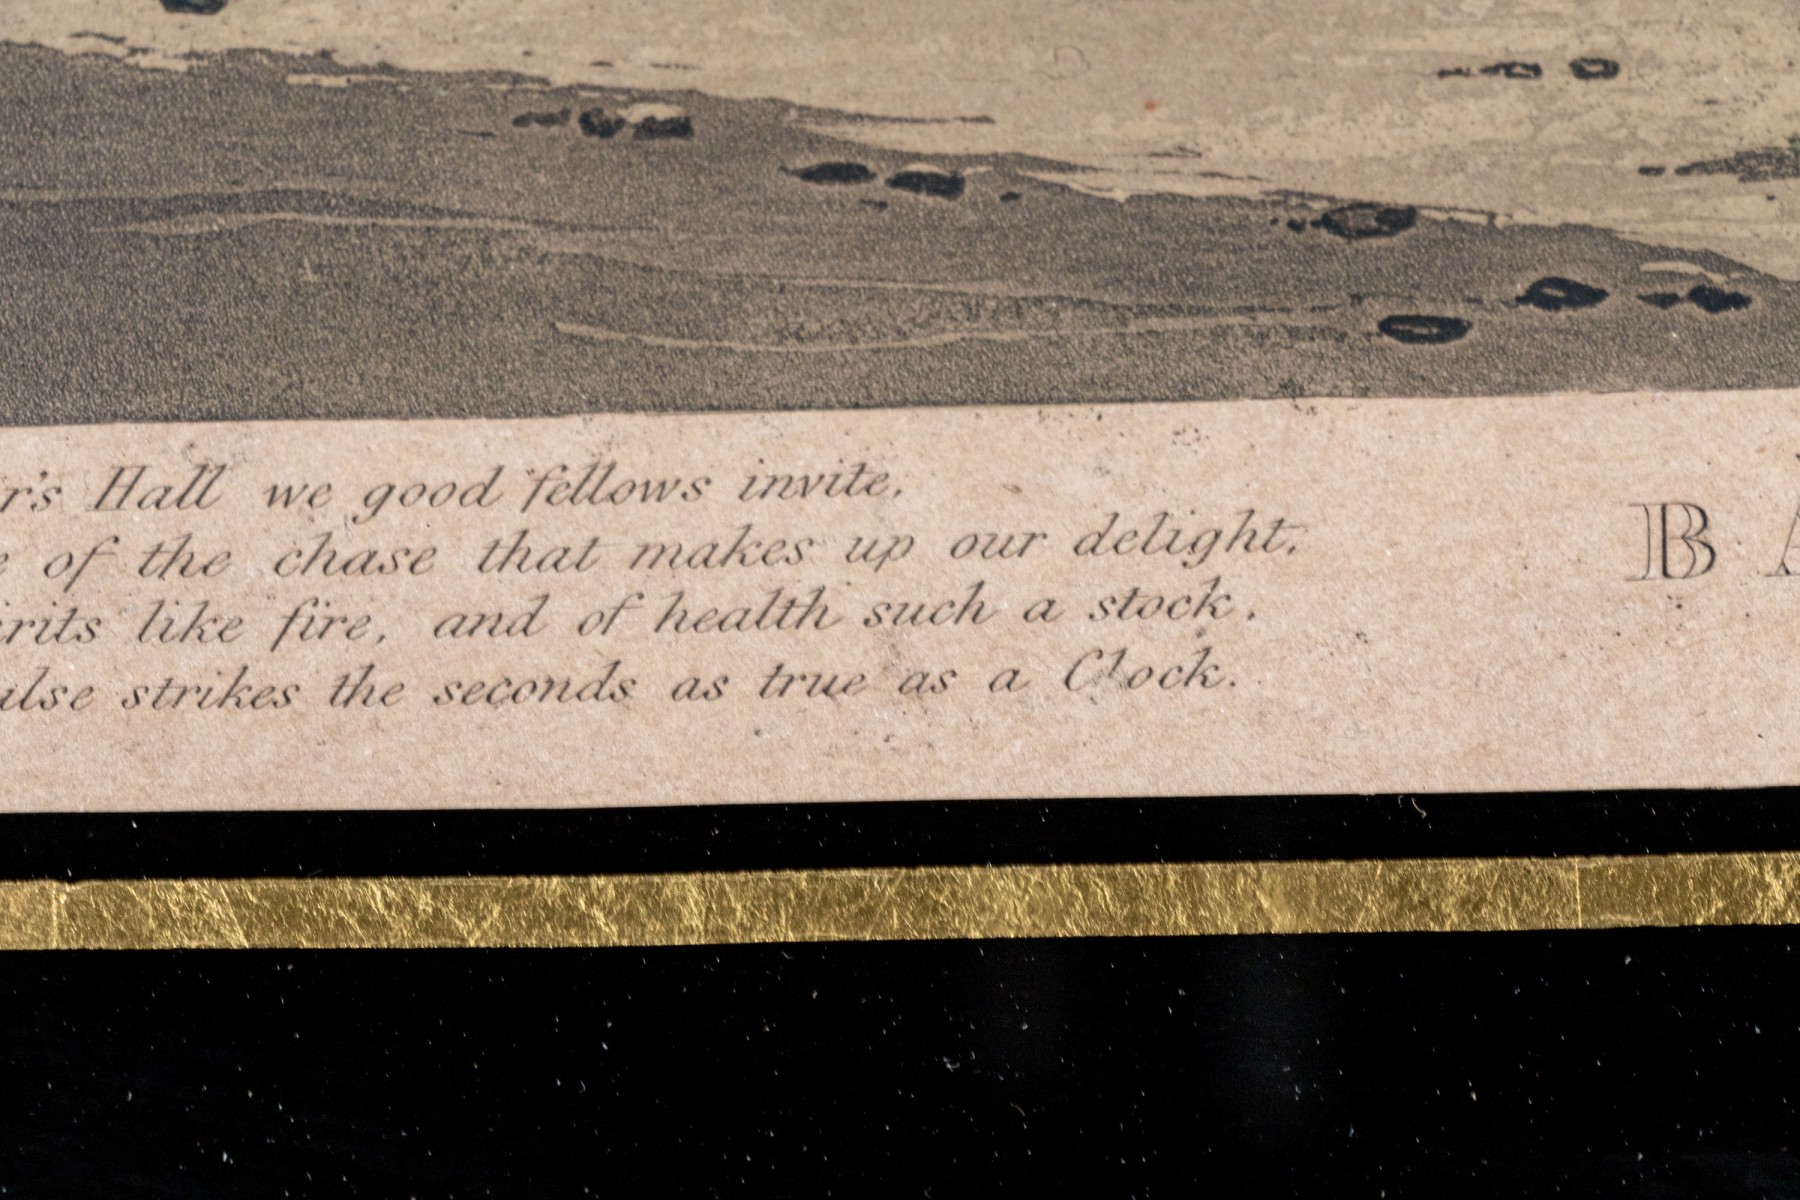 r's Hall we good fellows invite,
e of the chase that makes up our delight,
irits like fire, and of health such a stock,
ulse strikes the seconds as true as a Clock.
B A